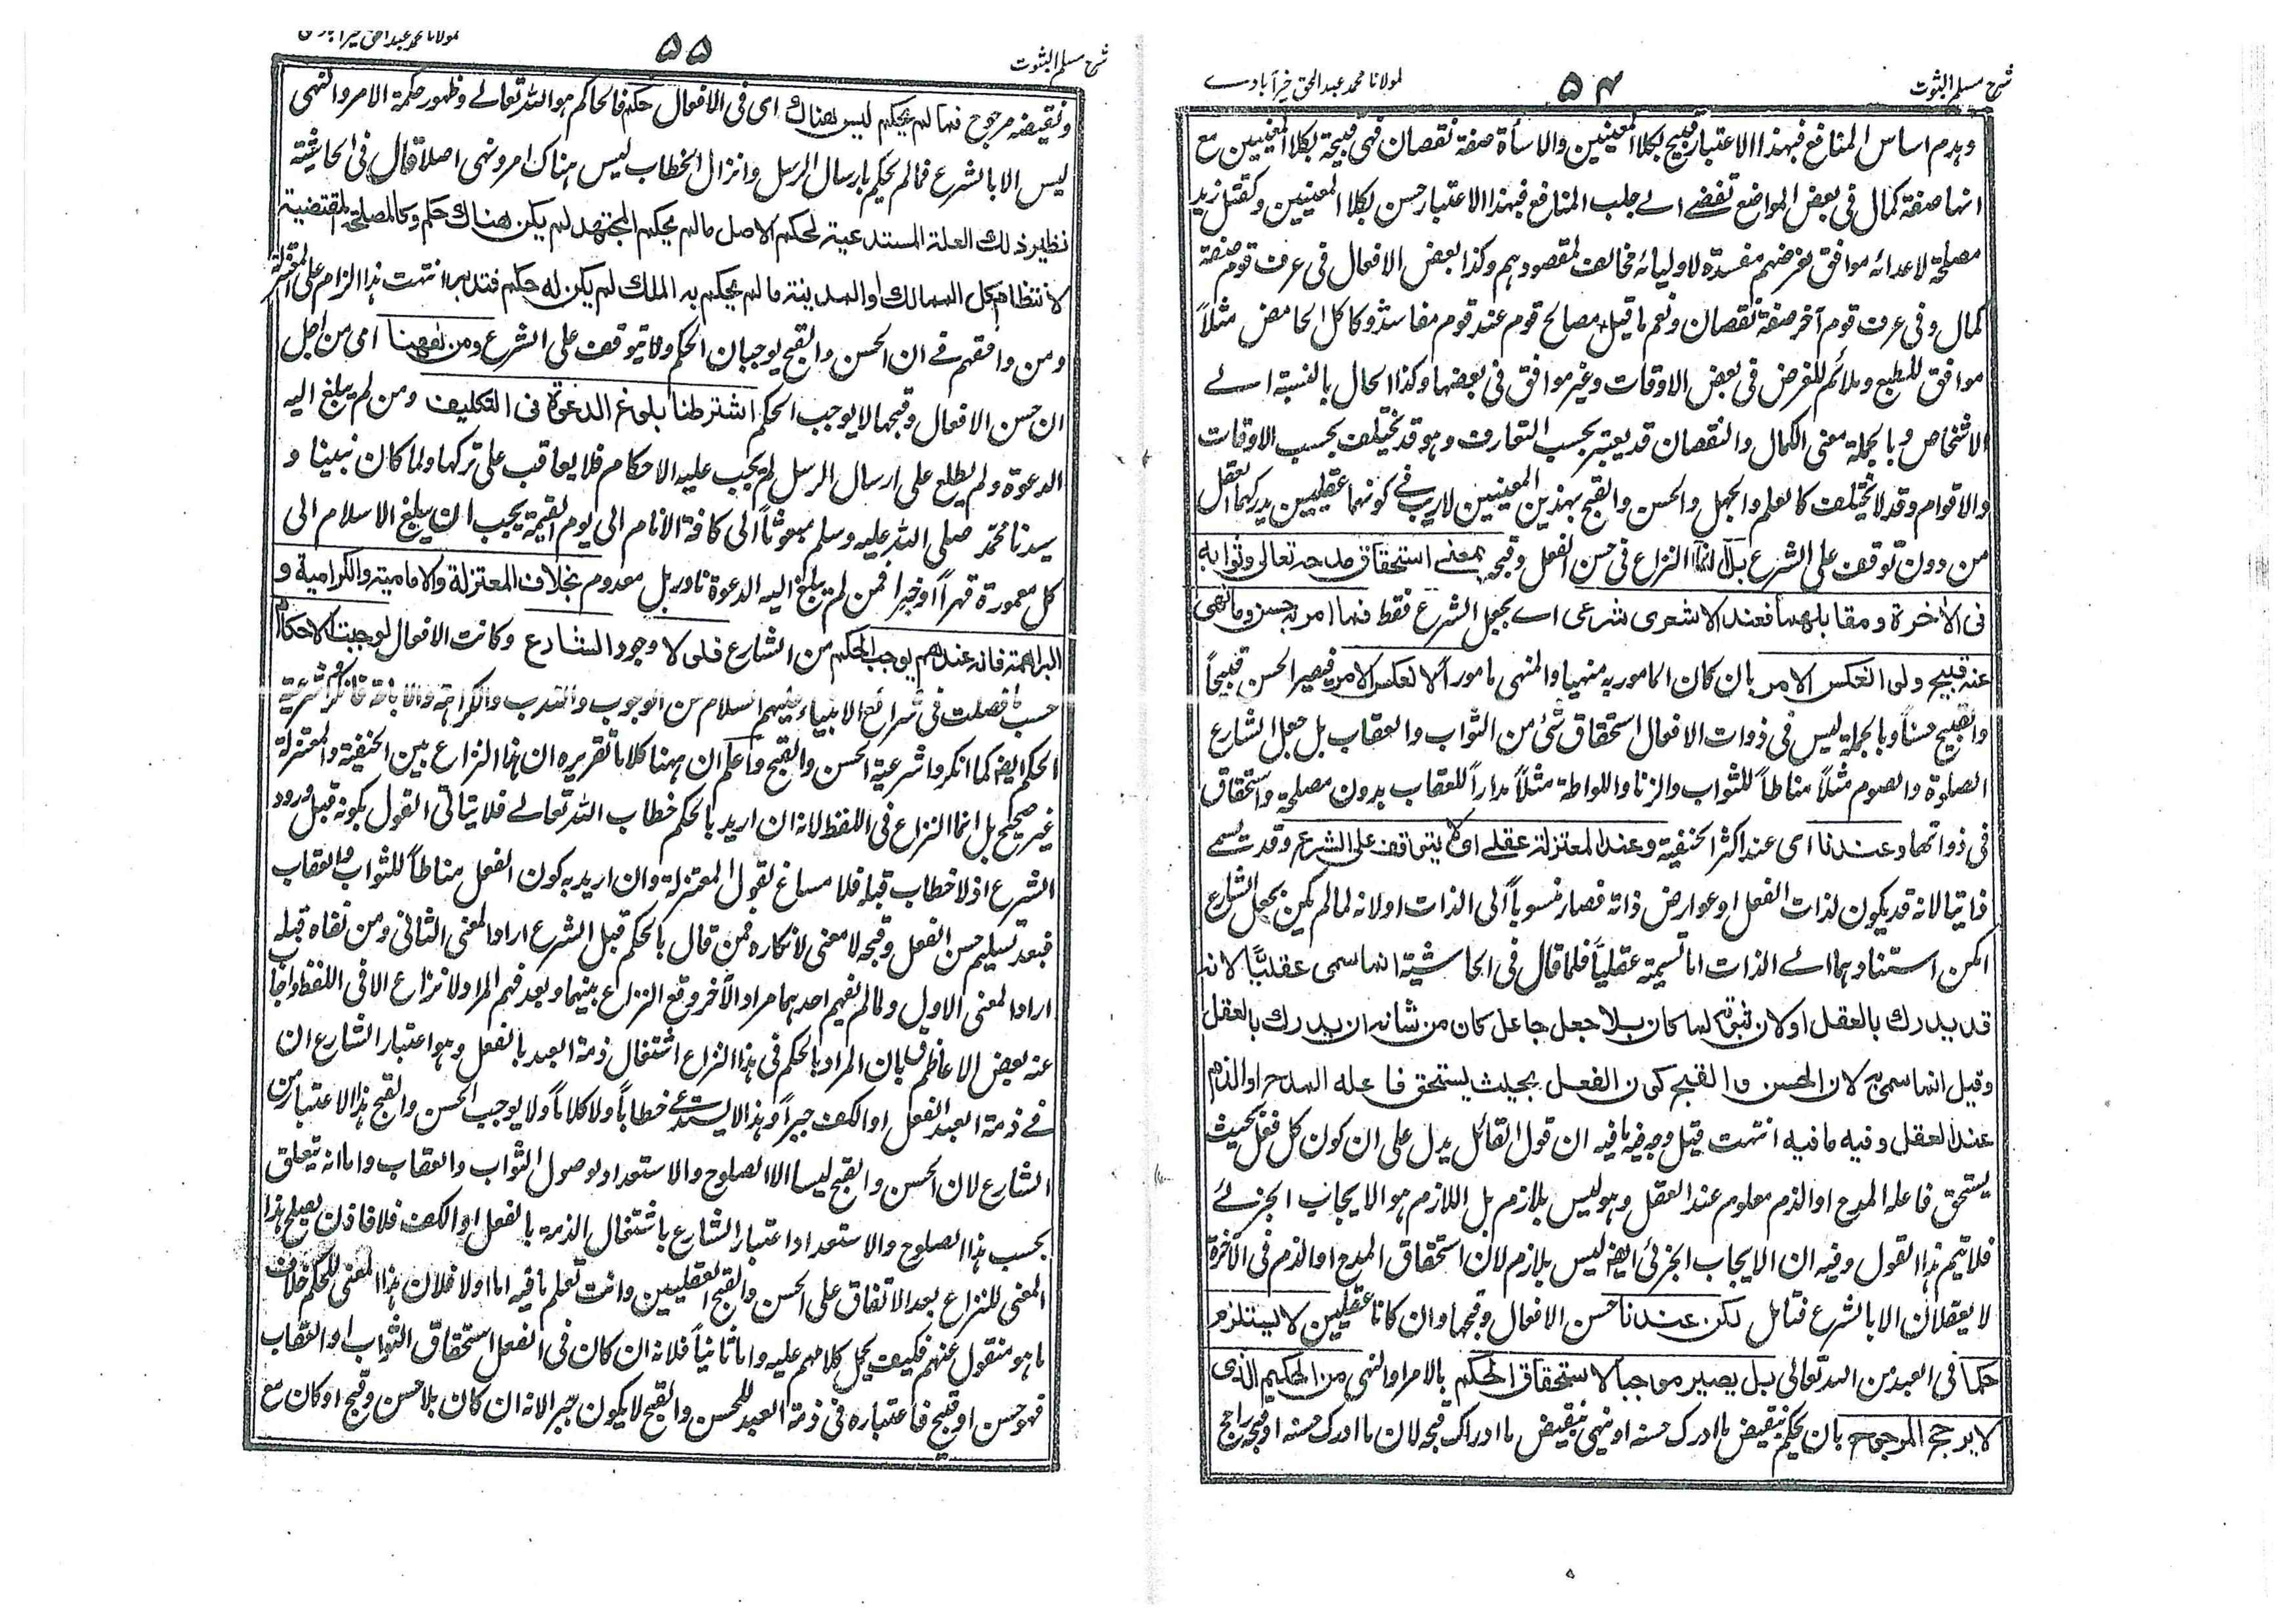 شرح مسلم الثبوت
۵۴
لمولانا محمد عبد الحق خیرآبادے
وہدم اساس المنافع فبہذا الاعتبار قبیح بکلا المعنیین والاسأۃ صفۃ نقصان فہی قبیحۃ بکلا المعنیین مع
انہا صفۃ کمال فی بعض المواضع تفضے الے جلب المنافع فبہذا الاعتبار حسن بکلا المعنیین وکقتل زید
مصلحۃ لاعدائہ موافق لغرضہم مفسدۃ لاولیائہ مخالف لمقصودہم وکذا بعض الافعال فی عرف قوم صفۃ
کمال وفی عرف قوم آخر صفۃ نقصان ونعم ما قیل مصالح قوم عند قوم مفاسد وکاکل الحامض مثلاً
موافق للطبع وملائم للغرض فی بعض الاوقات وغیر موافق فی بعضہا وکذا الحال بالنسبۃ الے
الاشخاص وبالجملۃ معنی الکمال والنقصان قد یعتبر بحسب التعارف وہو قد یختلف بحسب الاوقات
والاقوام وقد لا یختلف کالعلم والجہل والحسن والقبح بہذین المعنیین لاریب فے کونہما عقلیین یدرکہما العقل
من دون توقف علی الشرع بل انما النزاع فی حسن الفعل وقبحہ بمعنے استحقاق مدحہ تعالی وثوابہ
فی الاخرۃ ومقابلہما فعند الاشعری شرعی اے بجعل الشرع فقط فما امر بہ حسن وما نہی
عنہ قبیح ولو انعکس الامر بان کان المامور بہ منہیا والمنہی مامورا لانعکس الامر فیصیر الحسن قبیحاً
والقبیح حسناً وبالجملۃ لیس فی ذوات الافعال استحقاق شئ من الثواب والعقاب بل جعل الشارع
الصلوۃ والصوم مثلاً مناطاً للثواب والزنا واللواطۃ مثلاً مداراً للعقاب بدون مصلحۃ واستحقاق
فی ذواتہا وعندنا ای عند اکثر الحنفیۃ وعند المعتزلۃ عقلے ای لا یتوقف علی الشرع وقد تسمے
ذاتیا لانہ قد یکون لذات الفعل او عوارض ذاتہ فصار منسوباً الی الذات او لانہ لما لم یکن بجعل الشارع
امکن استنادہما الے الذات اما تسمیتہ عقلیاً فلما قال فی الحاشیۃ انما سمی عقلیًا لانہ
قد یدرک بالعقل او لان ثبوتہ لما کان بلا جعل جاعل کان من شانہ ان یدرک بالعقل
وقیل انما سمی بہ لان الحسن والقبح کون الفعل بحیث یستحق فاعلہ المدح او الذم
عند العقل وفیہ ما فیہ انتہت قیل وجہ فیہ ما فیہ ان قول القائل یدل علی ان کون کل فعل بحیث
یستحق فاعلہ المدح او الذم معلوم عند العقل وہو لیس بلازم بل اللازم ہو الایجاب الجزئے
فلا تیم ہذا القول وفیہ ان الایجاب الجزئی ایضا لیس بلازم لان استحقاق المدح او الذم فی الآخرۃ
لا یعقلان الا بالشرع فتامل لکن عندنا حسن الافعال وقبحہا وان کانا عقلیین لا یستلزم
حکما فی العبد من اللہ تعالی بل یصیر موجبا لاستحقاق الحکم بالامر والنہی من الحکیم الذی
لا یرجح المرجوح بان یحکم بنقیض ما ادرک حسنہ او نہی بنقیض ما ادراک قبحہ لان ما ادرک حسنہ او قبحہ راجح
شرح مسلم الثبوت
۵۵
ونقیضہ مرجوح فما لم یحکم لیس ہناک ای فی الافعال حکم فالحاکم ہو اللہ تعالے وظہور حکمۃ الامر والنہی
لیس الا بالشرع فما لم یحکم بارسال الرسل وانزال الخطاب لیس ہناک امر ونہی اصلا قال فی الحاشیۃ
نظیر ذلک العلۃ المستدعیۃ لحکم الاصل ما لم یحکم المجتہد لم یکن ہناک حکم وکالمصلحۃ المقتضیۃ
لانتظام کل الممالک او المدینۃ ما لم یحکم بہ الملک لم یکن لہ حکم فتدبر انتہت ہذا الزام علی المعتزلۃ
ومن وافقہم فے ان الحسن والقبح یوجبان الحکم ولا یتوقف علی الشرع ومن ہہنا ای من اجل
ان حسن الافعال وقبحہا لا یوجب الحکم اشترطنا بلوغ الدعوۃ فی التکلیف ومن لم یبلغ الیہ
الدعوۃ ولم یطلع علی ارسال الرسل لم یجب علیہ الاحکام فلا یعاقب علی ترکہا ولما کان نبینا و
سیدنا محمد صلی اللہ علیہ وسلم مبعوثاً الی کافۃ الانام الی یوم القیمۃ یجب ان یبلغ الاسلام الی
کل معمورۃ قہراً او خبرا فمن لم یبلغ الیہ الدعوۃ نادر بل معدوم بخلاف المعتزلۃ والامامیۃ والکرامیۃ و
البراہمۃ فانہ عندہم یوجب الحکم من الشارع فلو لا وجود الشارع وکانت الافعال لوجبت الاحکام
حسب ما فصلت فی شرائع الانبیاء علیہم السلام من الوجوب والندب والکراہۃ والاباحۃ فانکروا شرعیۃ
الحکم ایضا کما انکروا شرعیۃ الحسن والقبح واعلم ان ہہنا کلاما تقریرہ ان ہذا النزاع بین الحنفیۃ والمعتزلۃ
غیر صحیح بل انما النزاع فی اللفظ لانہ ان ارید بالحکم خطاب اللہ تعالے فلا یتاتی القول بکونہ قبل ورود
الشرع اذ لا خطاب قبلہ فلا مساغ لقول المعتزلۃ وان ارید بہ کون الفعل مناطاً للثواب والعقاب
فبعد تسلیم حسن الفعل وقبحہ لا معنی لانکارہ فمن قال بالحکم قبل الشرع اراد المعنی الثانی ومن نفاہ قبلہ
اراد المعنی الاول ولما لم یفہم احدہما مراد الآخر وقع النزاع بینہما وبعد فہم المراد لا نزاع الا فی اللفظ واجاب
عنہ بعض الاعاظم بان المراد بالحکم فی ہذا النزاع اشتغال ذمۃ العبد بالفعل وہو اعتبار الشارع ان
فے ذمۃ العبد الفعل او الکف جبراً وہذا لا یستدعے خطاباً ولا کلاماً ولا یوجب الحسن والقبح ہذا الاعتبار من
الشارع لان الحسن والقبح لیسا الا الصلوح والاستعداد لوصول الثواب والعقاب واما انہ یتعلق
بحسب ہذا الصلوح والاستعداد اعتبار الشارع باشتغال الذمۃ بالفعل او الکف فلا فاذن یصلح ہذا
المعنی للنزاع بعد الاتفاق علی الحسن والقبح العقلیین وانت تعلم ما فیہ اما اولا فلان ہذا المعنی للحکم خلاف
ما ہو منقول عنہم فکیف یحمل کلامہم علیہ واما ثانیاً فلانہ ان کان فی الفعل استحقاق الثواب او العقاب
فہو حسن او قبیح فاعتبارہ فی ذمۃ العبد للحسن والقبح لا یکون جبرا لانہ ان کان بلا حسن وقبح او کان مع